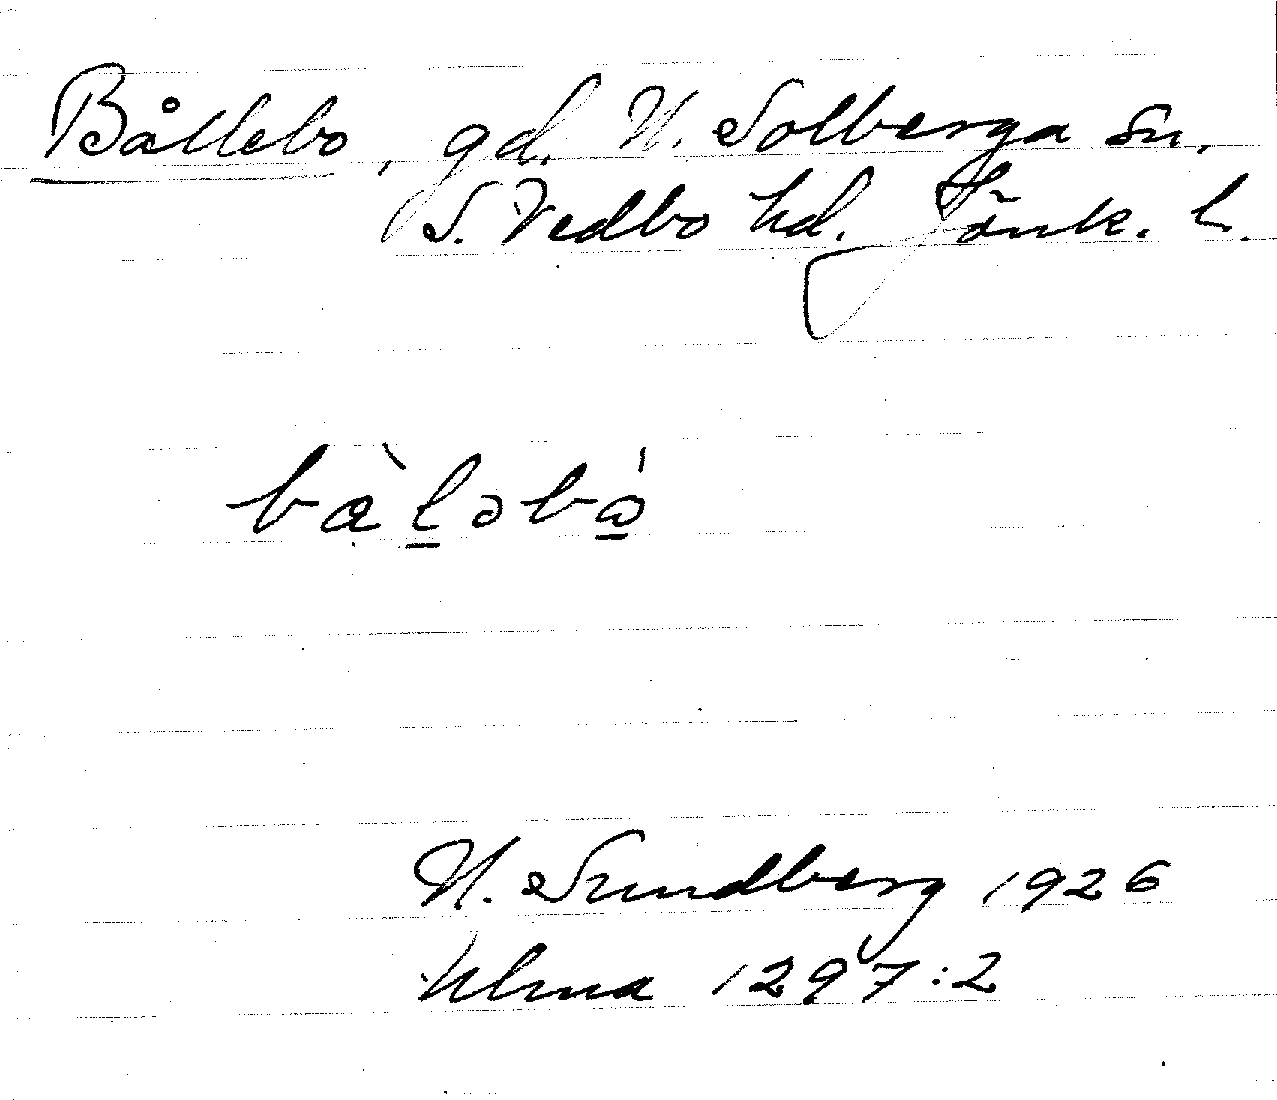 Bållebo, gd. N. Solberga sn,
S. Vedbo hd. Jönk. l.
bàləbó̲
H. Sundberg 1926
Ulma 1297:2